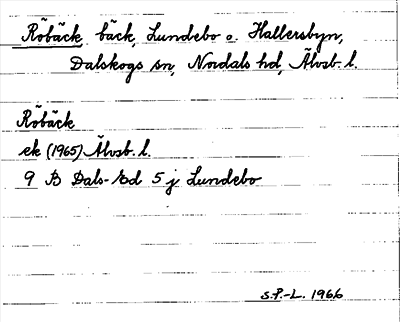 Röbäck, bäck, Lundebo o. Hallersbyn,
Dalskogs sn, Nordals hd, Älvsb. l.
Röbäck
ek (1965) Älvsb. l.
9 B Dals-Ed 5 j Lundebo
S.P.-L. 1966